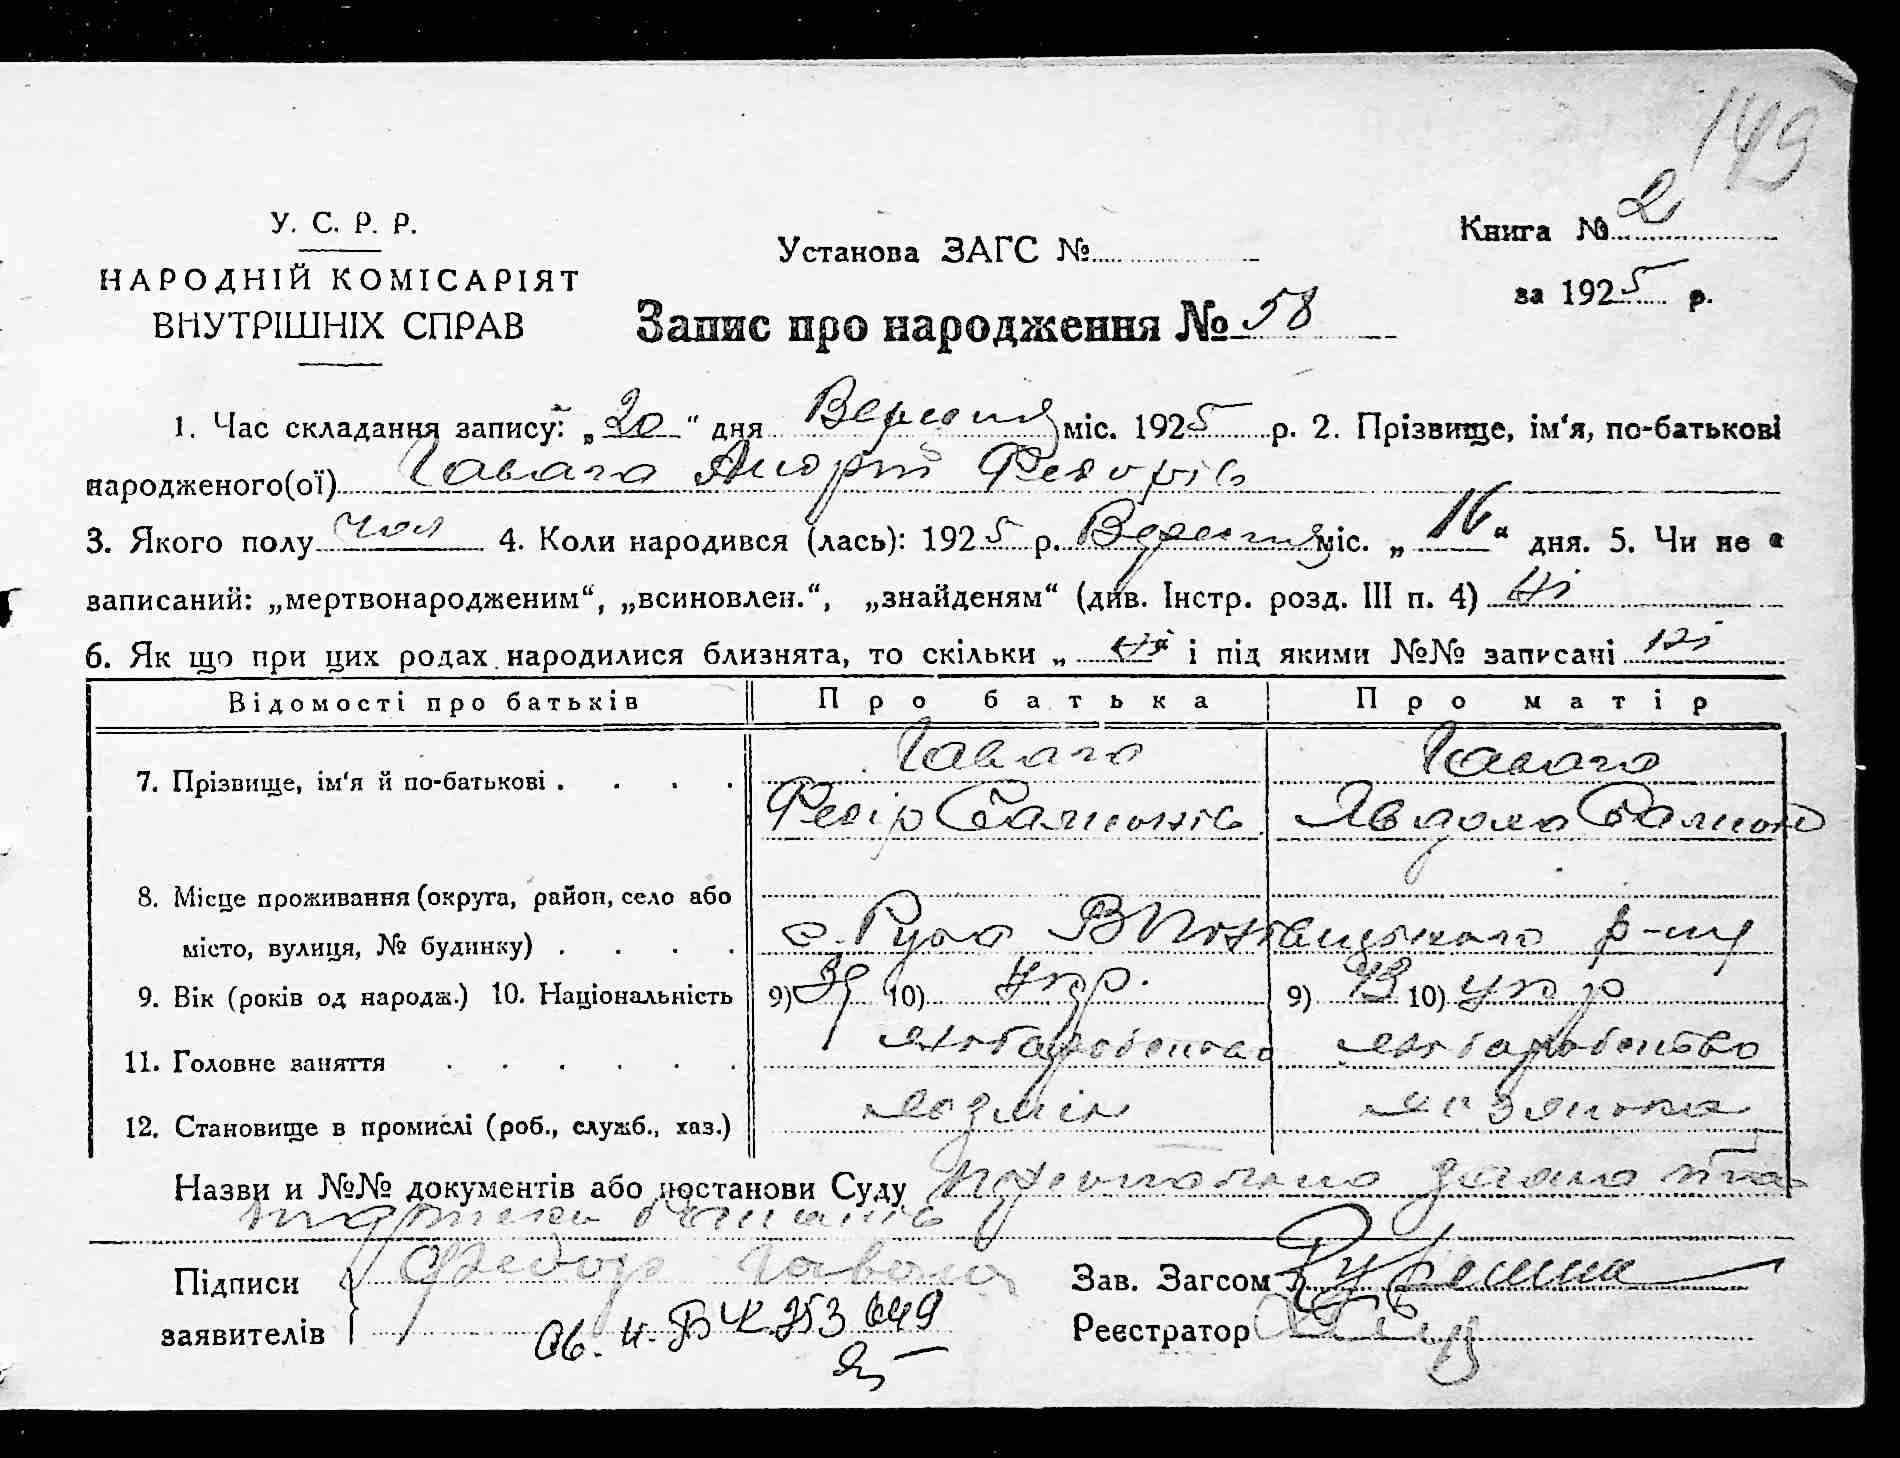 149
У. С. Р. Р.
НАРОДНІЙ КОМІСАРІЯТ
ВНУТРІШНІХ СПРАВ
Установа ЗАГС №
Книга № 2
за 1925 р.
Запис про народження № 58
1. Час складання запису: „20“ дня Вересня міс. 1925 р. 2. Прізвище, ім‘я, по-батькові
народженого(ої) Гавага Андрій Федорів
3. Якого полу чол 4. Коли народився (лась): 1925 р. Вересня міс. „16“ дня. 5. Чи не є
записаний: „мертвонародженим“, „всиновлен.“, „знайденям“ (див. Інстр. розд. III п. 4) ні
6. Як що при цих родах народилися близнята, то скільки „ ні і під якими №№ записані ні
Відомості про батьків Про батька Про матір
7. Прізвище, ім‘я й по-батькові Гавага Гавага
Федір Самсонів Явдоха
8. Місце проживання (округа, район, село або
місто, вулиця, № будинку) с. Руда р-ну
9. Вік (років од народж.) 10. Національність 9) 39 10) Укр. 9) 43 10) укр
11. Головне заняття хліборобство хліборобство
12. Становище в промислі (роб., служб., хаз.) хазяїн хазяйка
Назви и №№ документів або постанови Суду заява та
Підписи Федор Гавага Зав. Загсом
заявителів 353649 Реєстратор